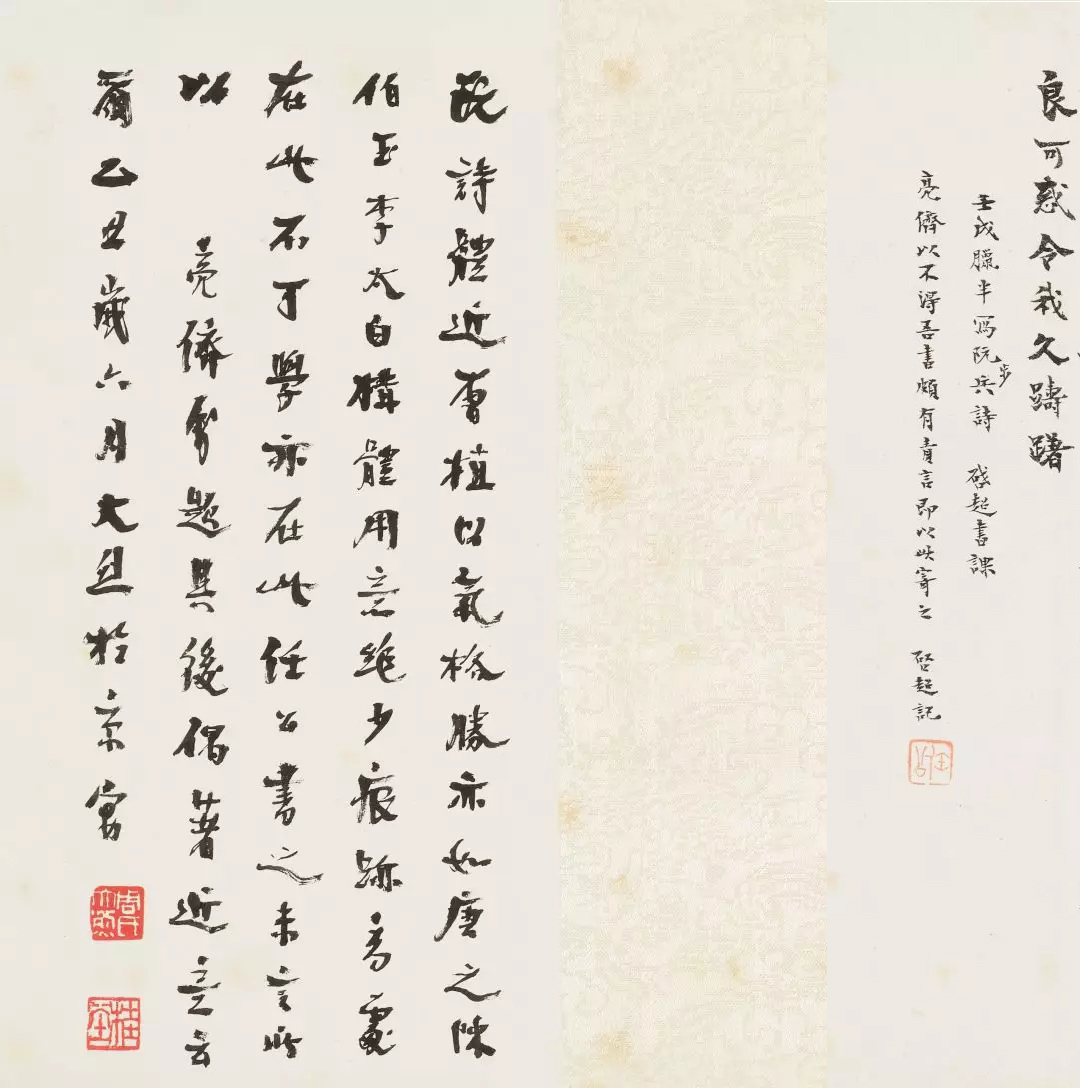 良可惑令我久躊躇
壬戌臘半寫阮步兵詩 啓超書課
亮儕以不得吾書頗有責言即以此寄之 啓超記
任公
阮詩體近曹植以氣格勝亦如唐之陳
伯玉李太白構體用意絕少痕跡高處
在此不可學亦在此任公書之未言所
以 亮儕屬題其後偶著近意云
爾乙丑歲六月大烈於京寓
周氏大烈